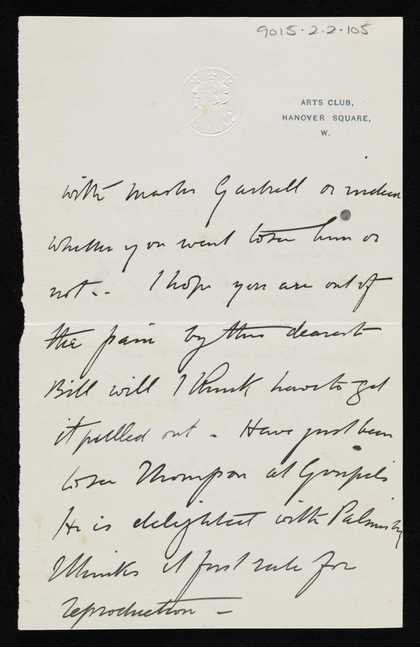 9015.2.2.105
ARTS CLUB,
HANOVER SQUARE,
W.
with Master Gaskell or indeed
whether you went to see him or
not.. I hope you are out of
the pain by this dearest
Bill will I think have to get
it pulled out - Have just been
to see Thompson at Goupils
He is delighted with Palmist by
thinks it first rate for
reproduction -